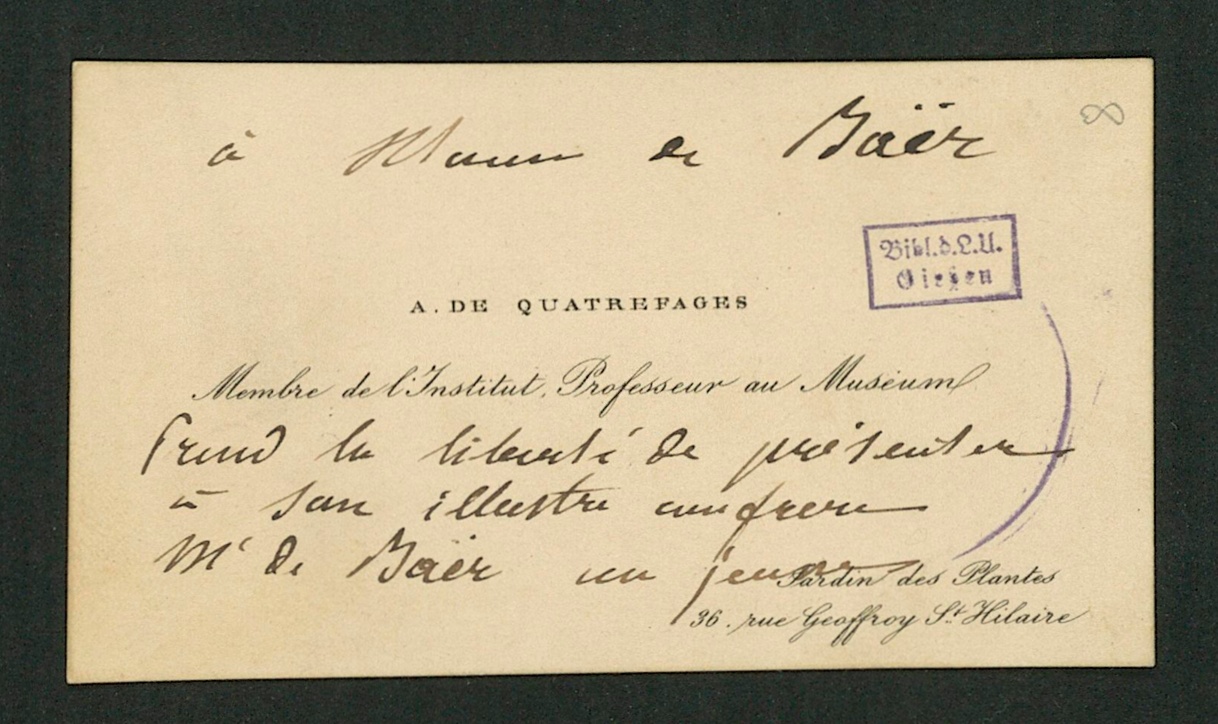 à Monsr de Baër
8
Bibl.d.L.U.
Gießen
A. DE QUATREFAGES
Membre de l'Institut, Professeur au Muséum
Prend la liberté de présenter
à son illustre confrère
Mr de Baër un jeune
Jardin des Plantes
36. rue Geoffroy St. Hilaire